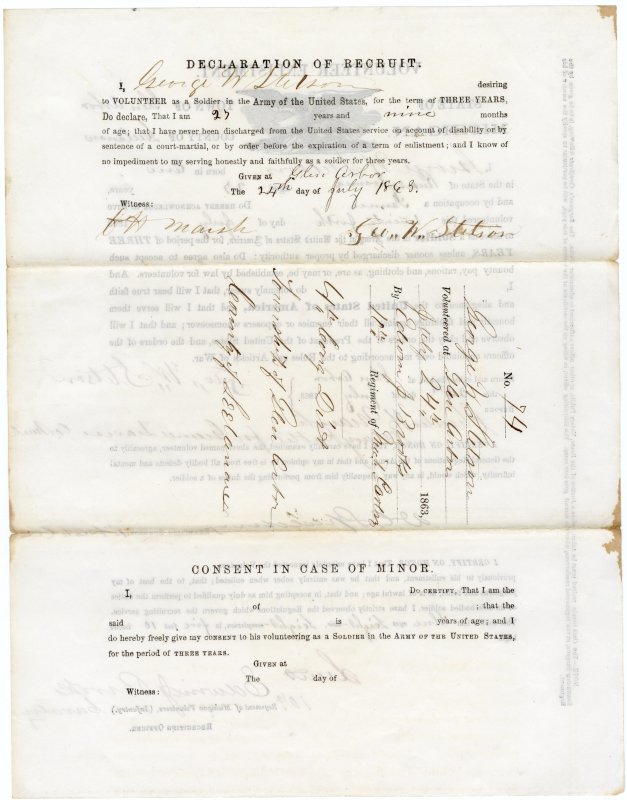 DECLARATION OF RECRUIT.
I, George W Stetson desiring
to VOLUNTEER as a Soldier in the Army of the United States, for the term of THREE YEARS,
Do declare, That I am 27 years and nine months
of age; that I have never been discharged from the United States service on account of disability or by
sentence of a court-martial, or by order before the expiration of a term of enlistment; and I know of
no impediment to my serving honestly and faithfully as a soldier for three years.
GIVEN at Glen Arbor
The 24th day of July 1863.
Witness:
H Marsh Geo. W. Stetson
No. 74
George W Stetson
Volunteered at Glen Arbor
July 24th 1863,
By Edwin J Brooks
10th Regiment of Mich Cavlry
4th Cong Dist
Township of Glen Arbor
County of Leelanaw
CONSENT IN CASE OF MINOR.
I, Do CERTIFY, That I am the
of ; that the
said is years of age; and I
do hereby freely give my CONSENT to his volunteering as a SOLDIER in the ARMY OF THE UNITED STATES,
for the period of THREE YEARS.
GIVEN at
The day of
Witness: